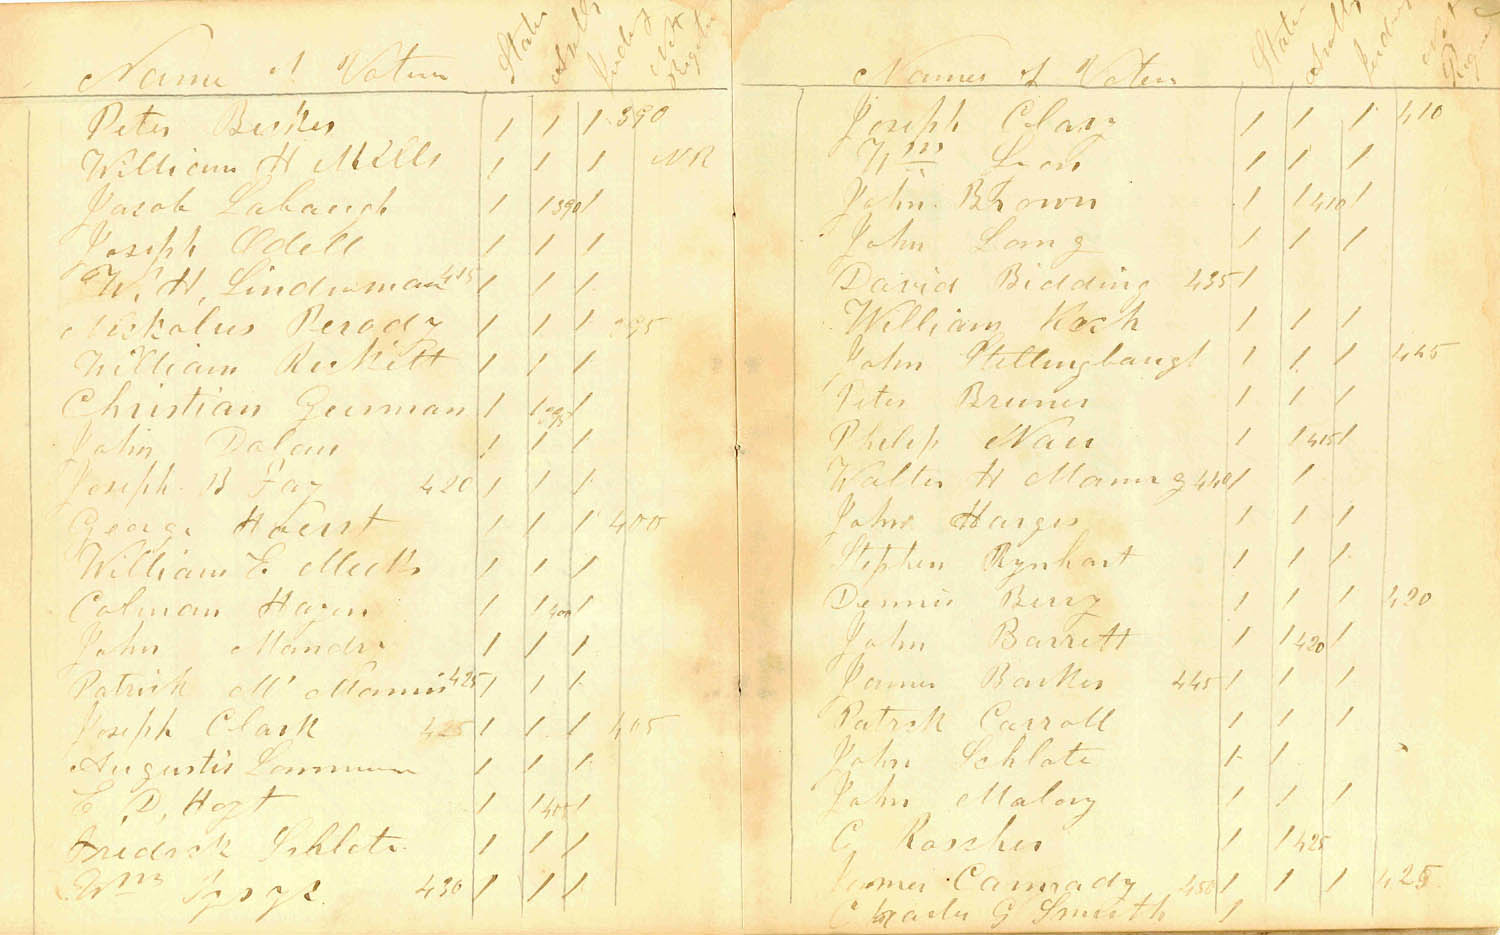 Name of Voters State Judg Not Regist
Peter Becker 1 1 1 390
William H Mills 1 1 1 NR
Jacob Labaugh 1 1 390 1
Joseph Odell 1 1 1
W. H. Linderman 415 1 1 1
Nickolus Perody 1 1 1 395
William Rickett 1 1 1
Christian Geerman 1 1 395 1
John Dolan 1 1 1
Joseph B Fay 420 1 1 1
George Hoerst 1 1 1 400
William E Meeks 1 1 1
Colman Hagen 1 1 400 1
John 1 1 1
Patrick Mc Mannis 425 1 1 1
Joseph Clark 425 1 1 1 405
Augustis 1 1 1
E. D. Hoyt 1 1 405 1
Fredrick Schlote 1 1 1
Wm 430 1 1 1
Names of Voters State Judg Not Regis
Joseph Clary 1 1 1 410
Wm Leon 1 1 1
John Brown 1 1 410 1
John Long 1 1 1
David Bidding 435 1
William Koch 1 1 1
John Stillingbaugh 1 1 1 415
Peter Bruner 1 1 1
Philip Nau 1 1 415 1
Walter H Manning 440 1 1
John Harges 1 1 1
Stephen Rynhart 1 1 1
Dennis Berry 1 1 1 420
John Barrett 1 1 420 1
James Barker 445 1 1 1
Patrck Carroll 1 1 1
John Schlote 1 1
John Malory 1 1 1
C Roscher 1 1 425
James Cannady 450 1 1 1 425
Charles G Smith 1